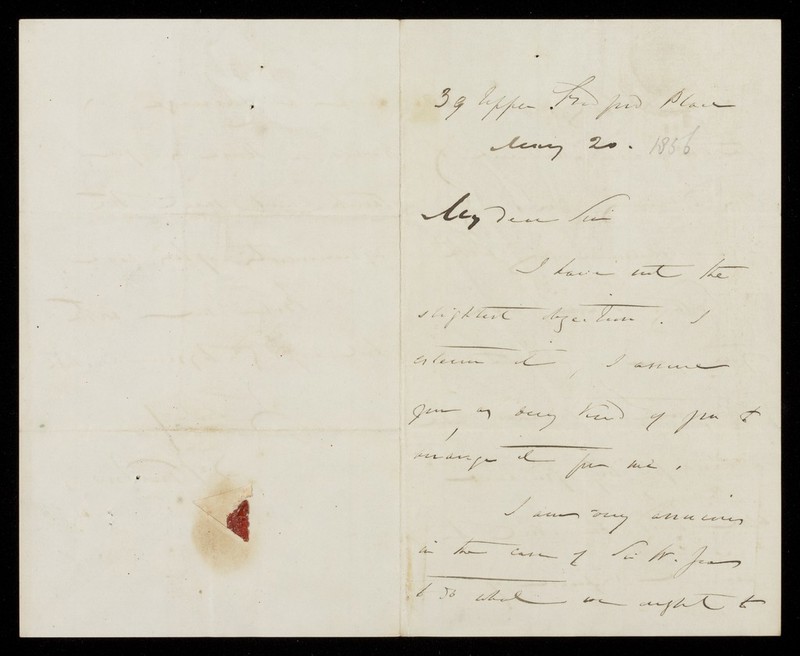 39 Upper Bedford Place
May 20. 1856
My dear Sir
I have not the
slightest objection. I
esteem it, I assure
you as very kind of you to
arrange it for me.
I am very anxious
in the case of Sir W. Jones
to do what we ought to